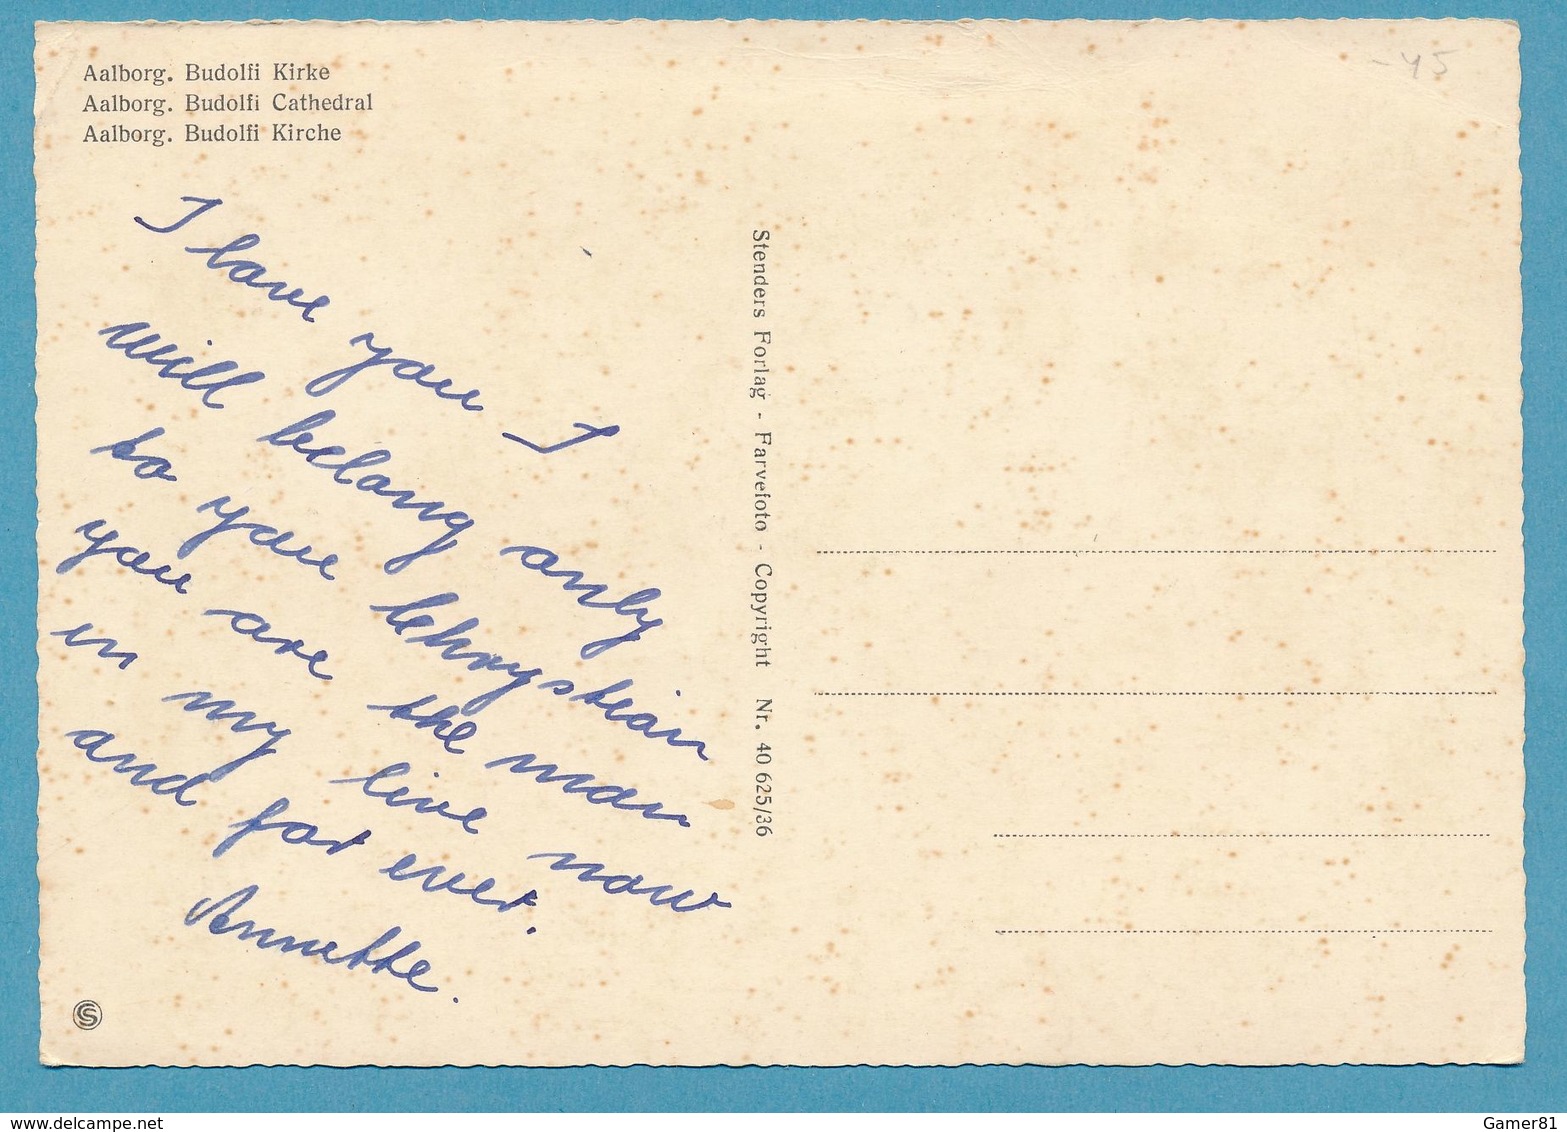 Aalborg. Budolfi Kirke
Aalborg. Budolfi Cathedral
Aalborg. Budolfi Kirche
-45
I love you I
will belong only
to you Chrystian
you are the man
in my live now
and for ever.
Annette.
Stenders Forlag - Farvefoto - Copyright Nr. 40 625/36
CS
Gamer81